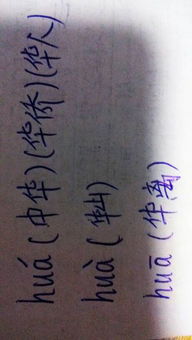 huá (中华)(华侨)(华人)
huà (华山)
huā (华离)